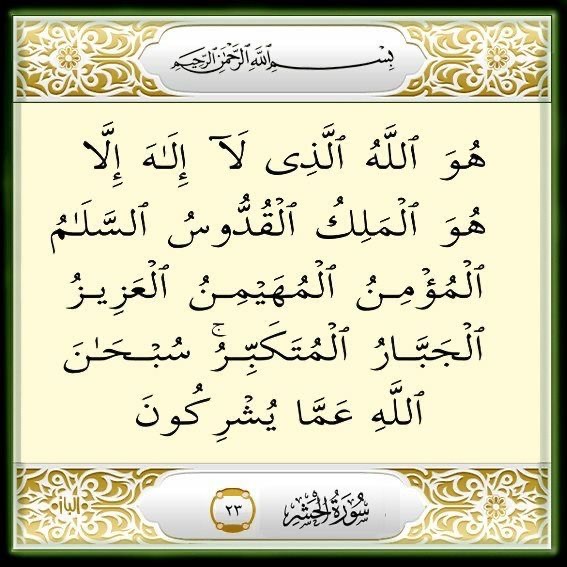 بِسْمِ ٱللَّهِ ٱلرَّحْمَٰنِ ٱلرَّحِيمِ
هُوَ ٱللَّهُ ٱلَّذِى لَآ إِلَٰهَ إِلَّا
هُوَ ٱلْمَلِكُ ٱلْقُدُّوسُ ٱلسَّلَٰمُ
ٱلْمُؤْمِنُ ٱلْمُهَيْمِنُ ٱلْعَزِيزُ
ٱلْجَبَّارُ ٱلْمُتَكَبِّرُ ۚ سُبْحَٰنَ
ٱللَّهِ عَمَّا يُشْرِكُونَ
سُورَةُ الحَشْرِ ٢٣